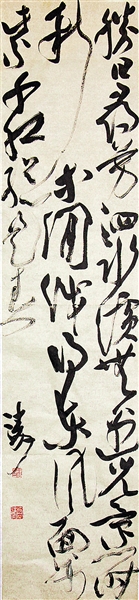 勝日尋芳泗水濱無邊光景一時
新等閒識得東風面萬
紫千紅總是春